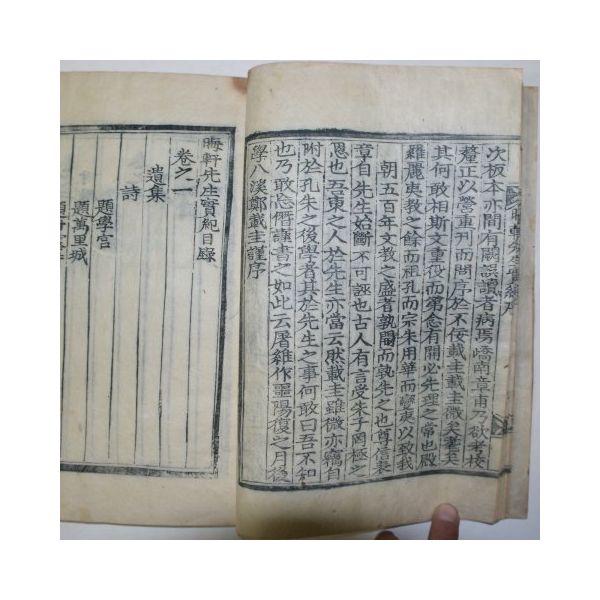 次板本亦間有闕誤讀者病焉嶠南章甫乃欲考校
釐正以營重刊而問序於不侫載圭載圭微矣耄矣
其何敢相斯文重役而第念有開必先理之常也殿
羅麗夷教之餘而祖孔而宗朱用華而變夷以致我
朝五百年文教之盛者孰闢而孰先之也尊信表
章自先生始斷不可誣也古人有言受朱子罔極之
恩也吾東之人於先生亦當云然載圭雖微亦竊自
附於孔朱之後學者其於先生之事何敢曰吾不知
也乃敢忘僭謹書之如此云屠維作噩陽復之月後
學八溪鄭載圭謹序
晦軒先生實紀目錄
卷之一
遺集
詩
題學宮
題萬里城